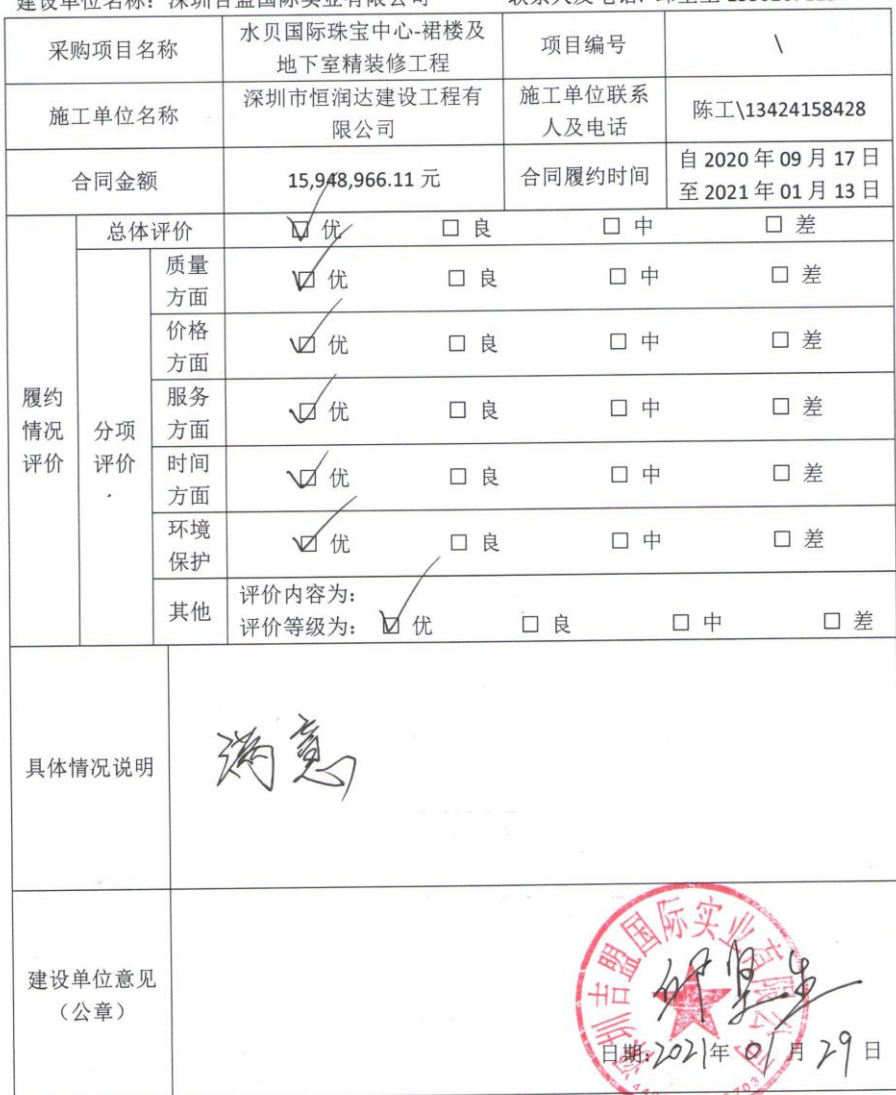 建设单位名称：深圳吉盟国际实业有限公司
联系人及电话：
采购项目名称
水贝国际珠宝中心-裙楼及
地下室精装修工程
项目编号
\
施工单位名称
深圳市恒润达建设工程有
限公司
施工单位联系
人及电话
陈工\13424158428
合同金额
15,948,966.11 元
合同履约时间
自 2020 年 09 月 17 日
至 2021 年 01 月 13 日
履约
情况
评价
总体评价
☑ 优 □ 良 □ 中 □ 差
分项
评价
质量
方面
☑ 优 □ 良 □ 中 □ 差
价格
方面
☑ 优 □ 良 □ 中 □ 差
服务
方面
☑ 优 □ 良 □ 中 □ 差
时间
方面
☑ 优 □ 良 □ 中 □ 差
环境
保护
☑ 优 □ 良 □ 中 □ 差
其他
评价内容为：
评价等级为： ☑ 优 □ 良 □ 中 □ 差
具体情况说明
满意
建设单位意见
（公章）
深圳吉盟国际实业有限公司
日期：2021年 01 月 29 日